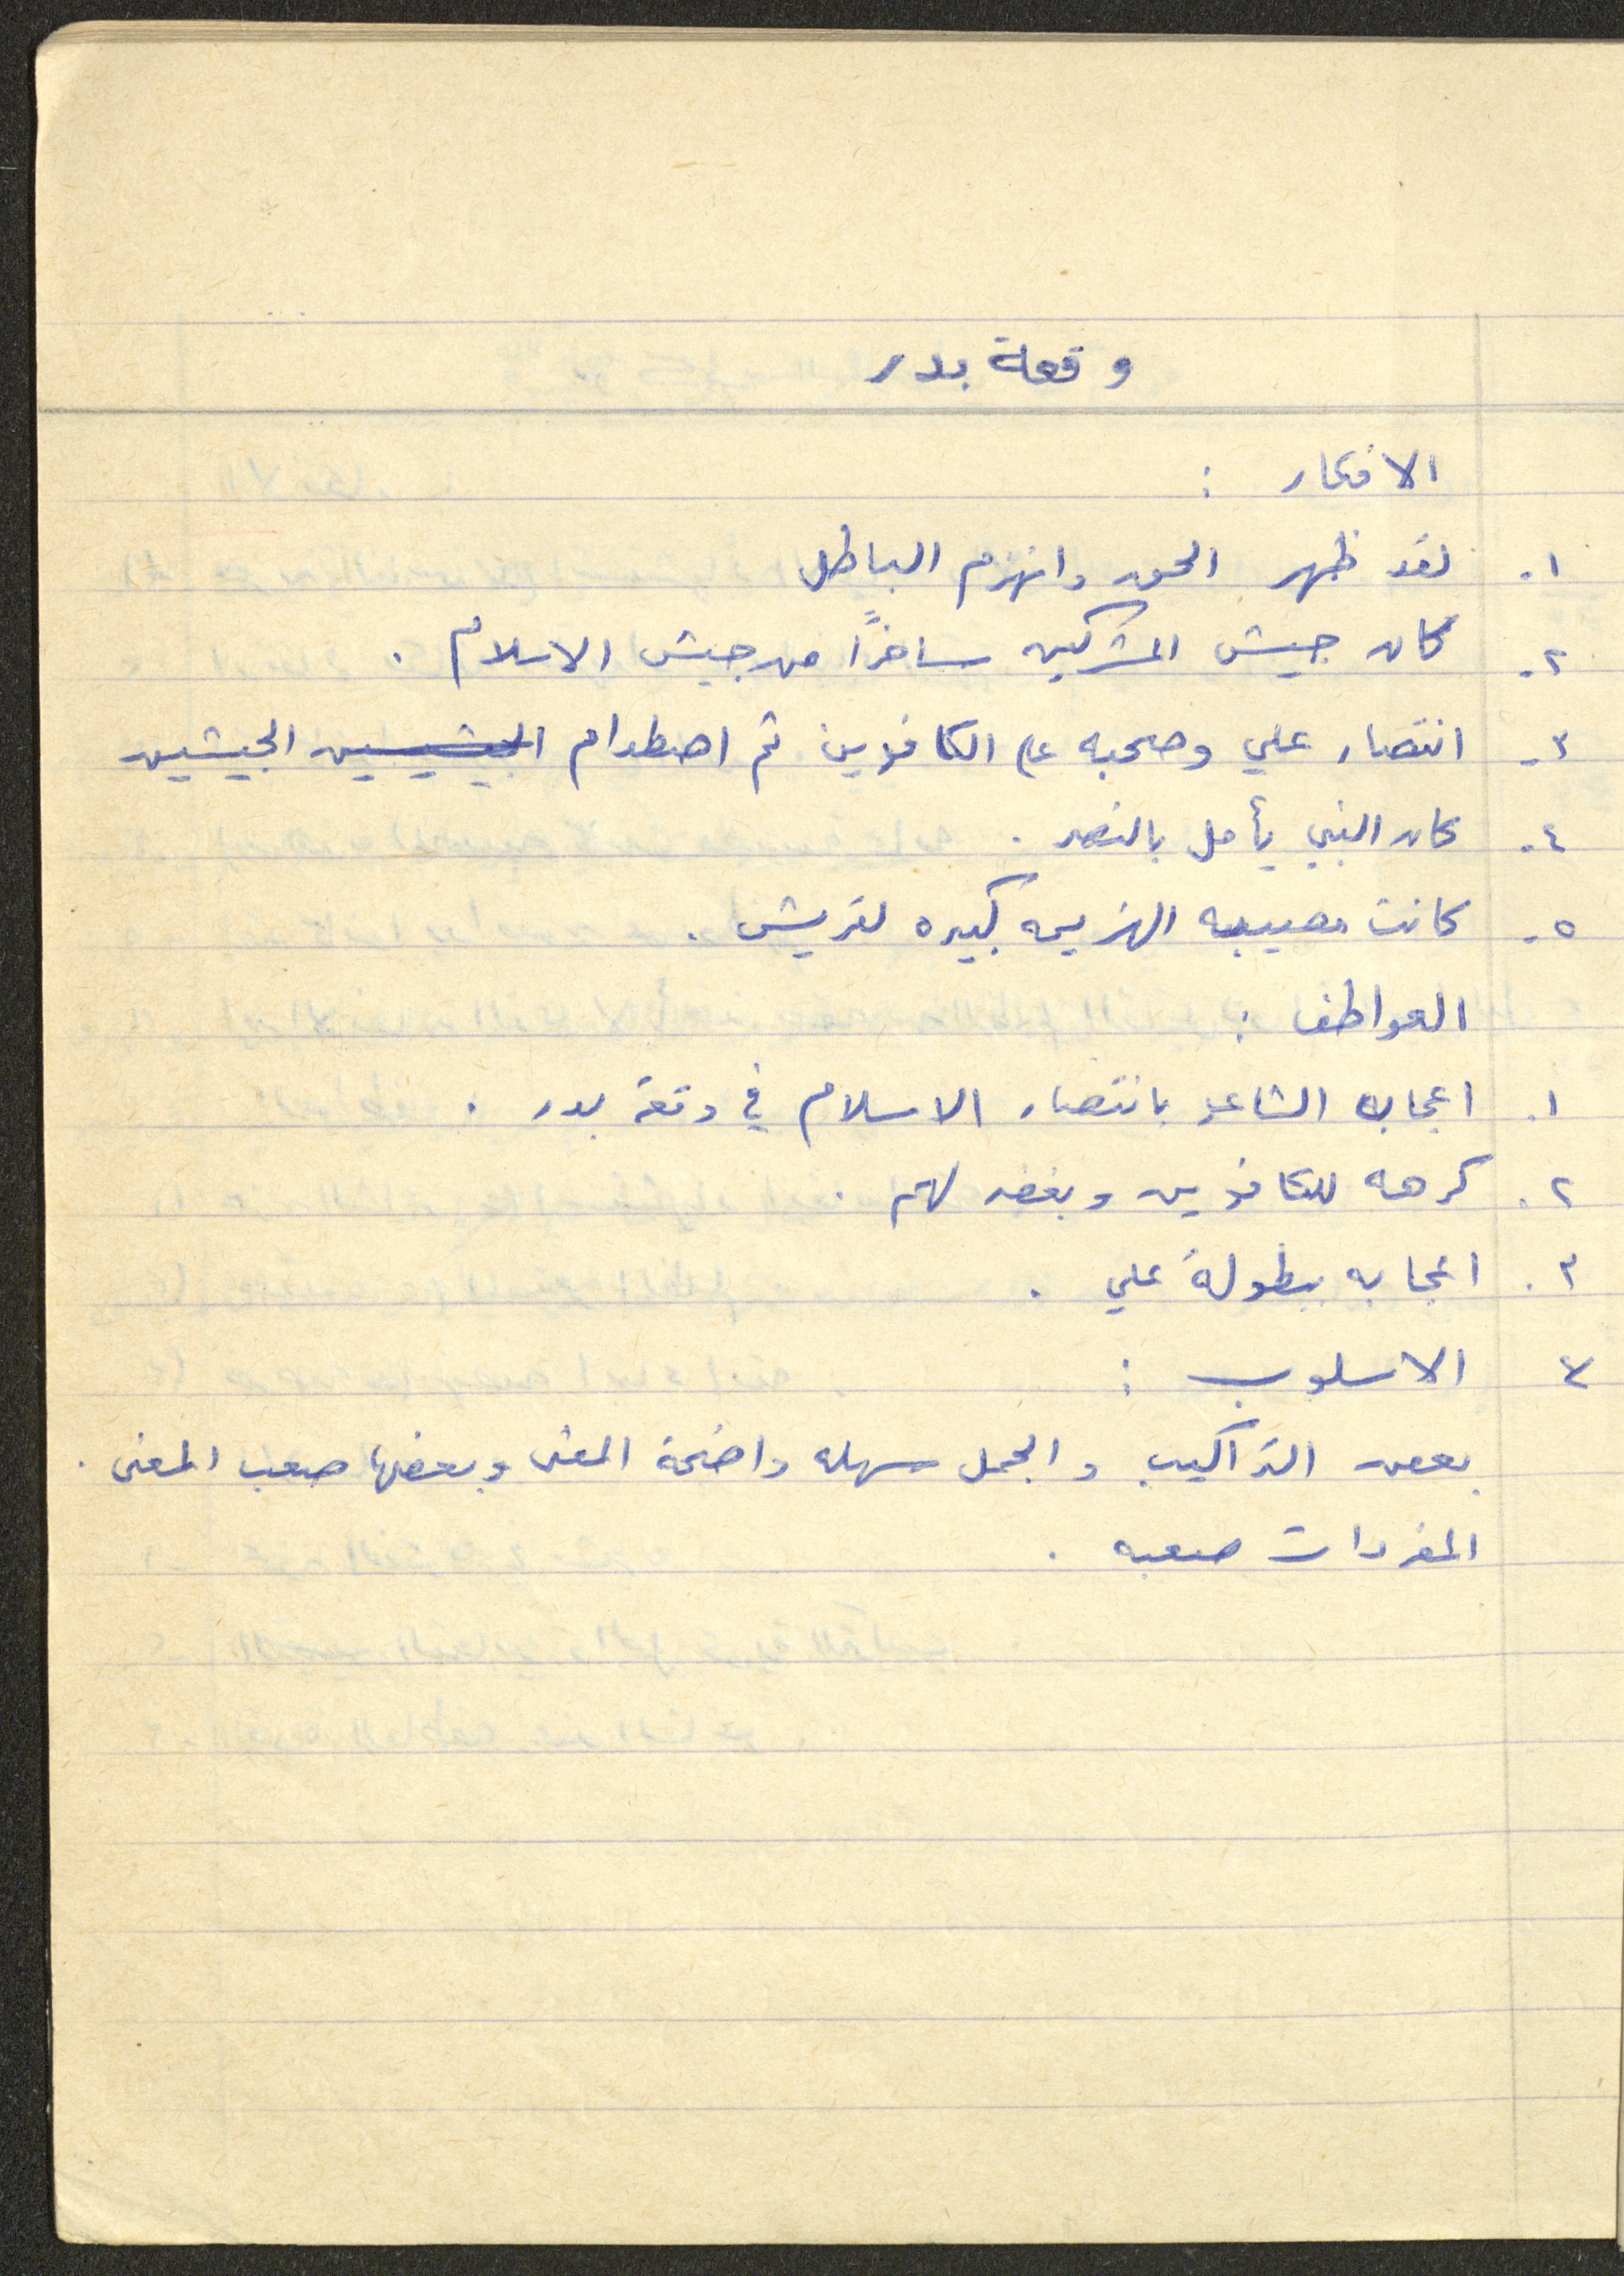 وقعة بدر
الافكار :
١. لقد ظهر الحق وانهزم الباطل
٢. كان جيش المشركين ساخراً من جيش الاسلام .
٣. انتصار علي وصحبه على الكافرين ثم اصطدام الجيشين
٤. كان النبي يأمل بالنصر .
٥. كانت مصيبه الهزيمه كبيره لقريش .
العواطف :
١. اعجاب الشاعر بانتصار الاسلام في وقعة بدر .
٢. كرهه للكافرين وبغضه لهم .
٣. اعجابه ببطولة علي .
الاسلوب :
بعض التراكيب والجمل سهله واضحة المعنى وبعضها صعب المعنى .
المفردات صعبه .